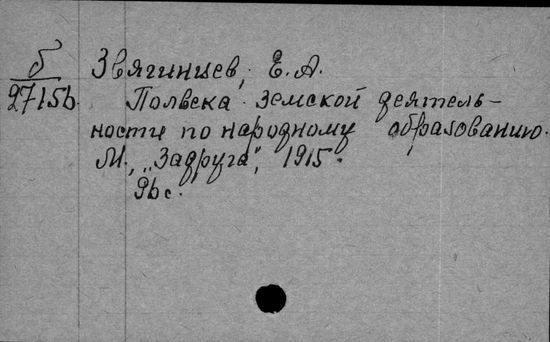 б
27156.
Звягинцев, Е.А.
Полвека земской деятель-
ности по народному образованию.
М., "Задруга", 1915.
с.